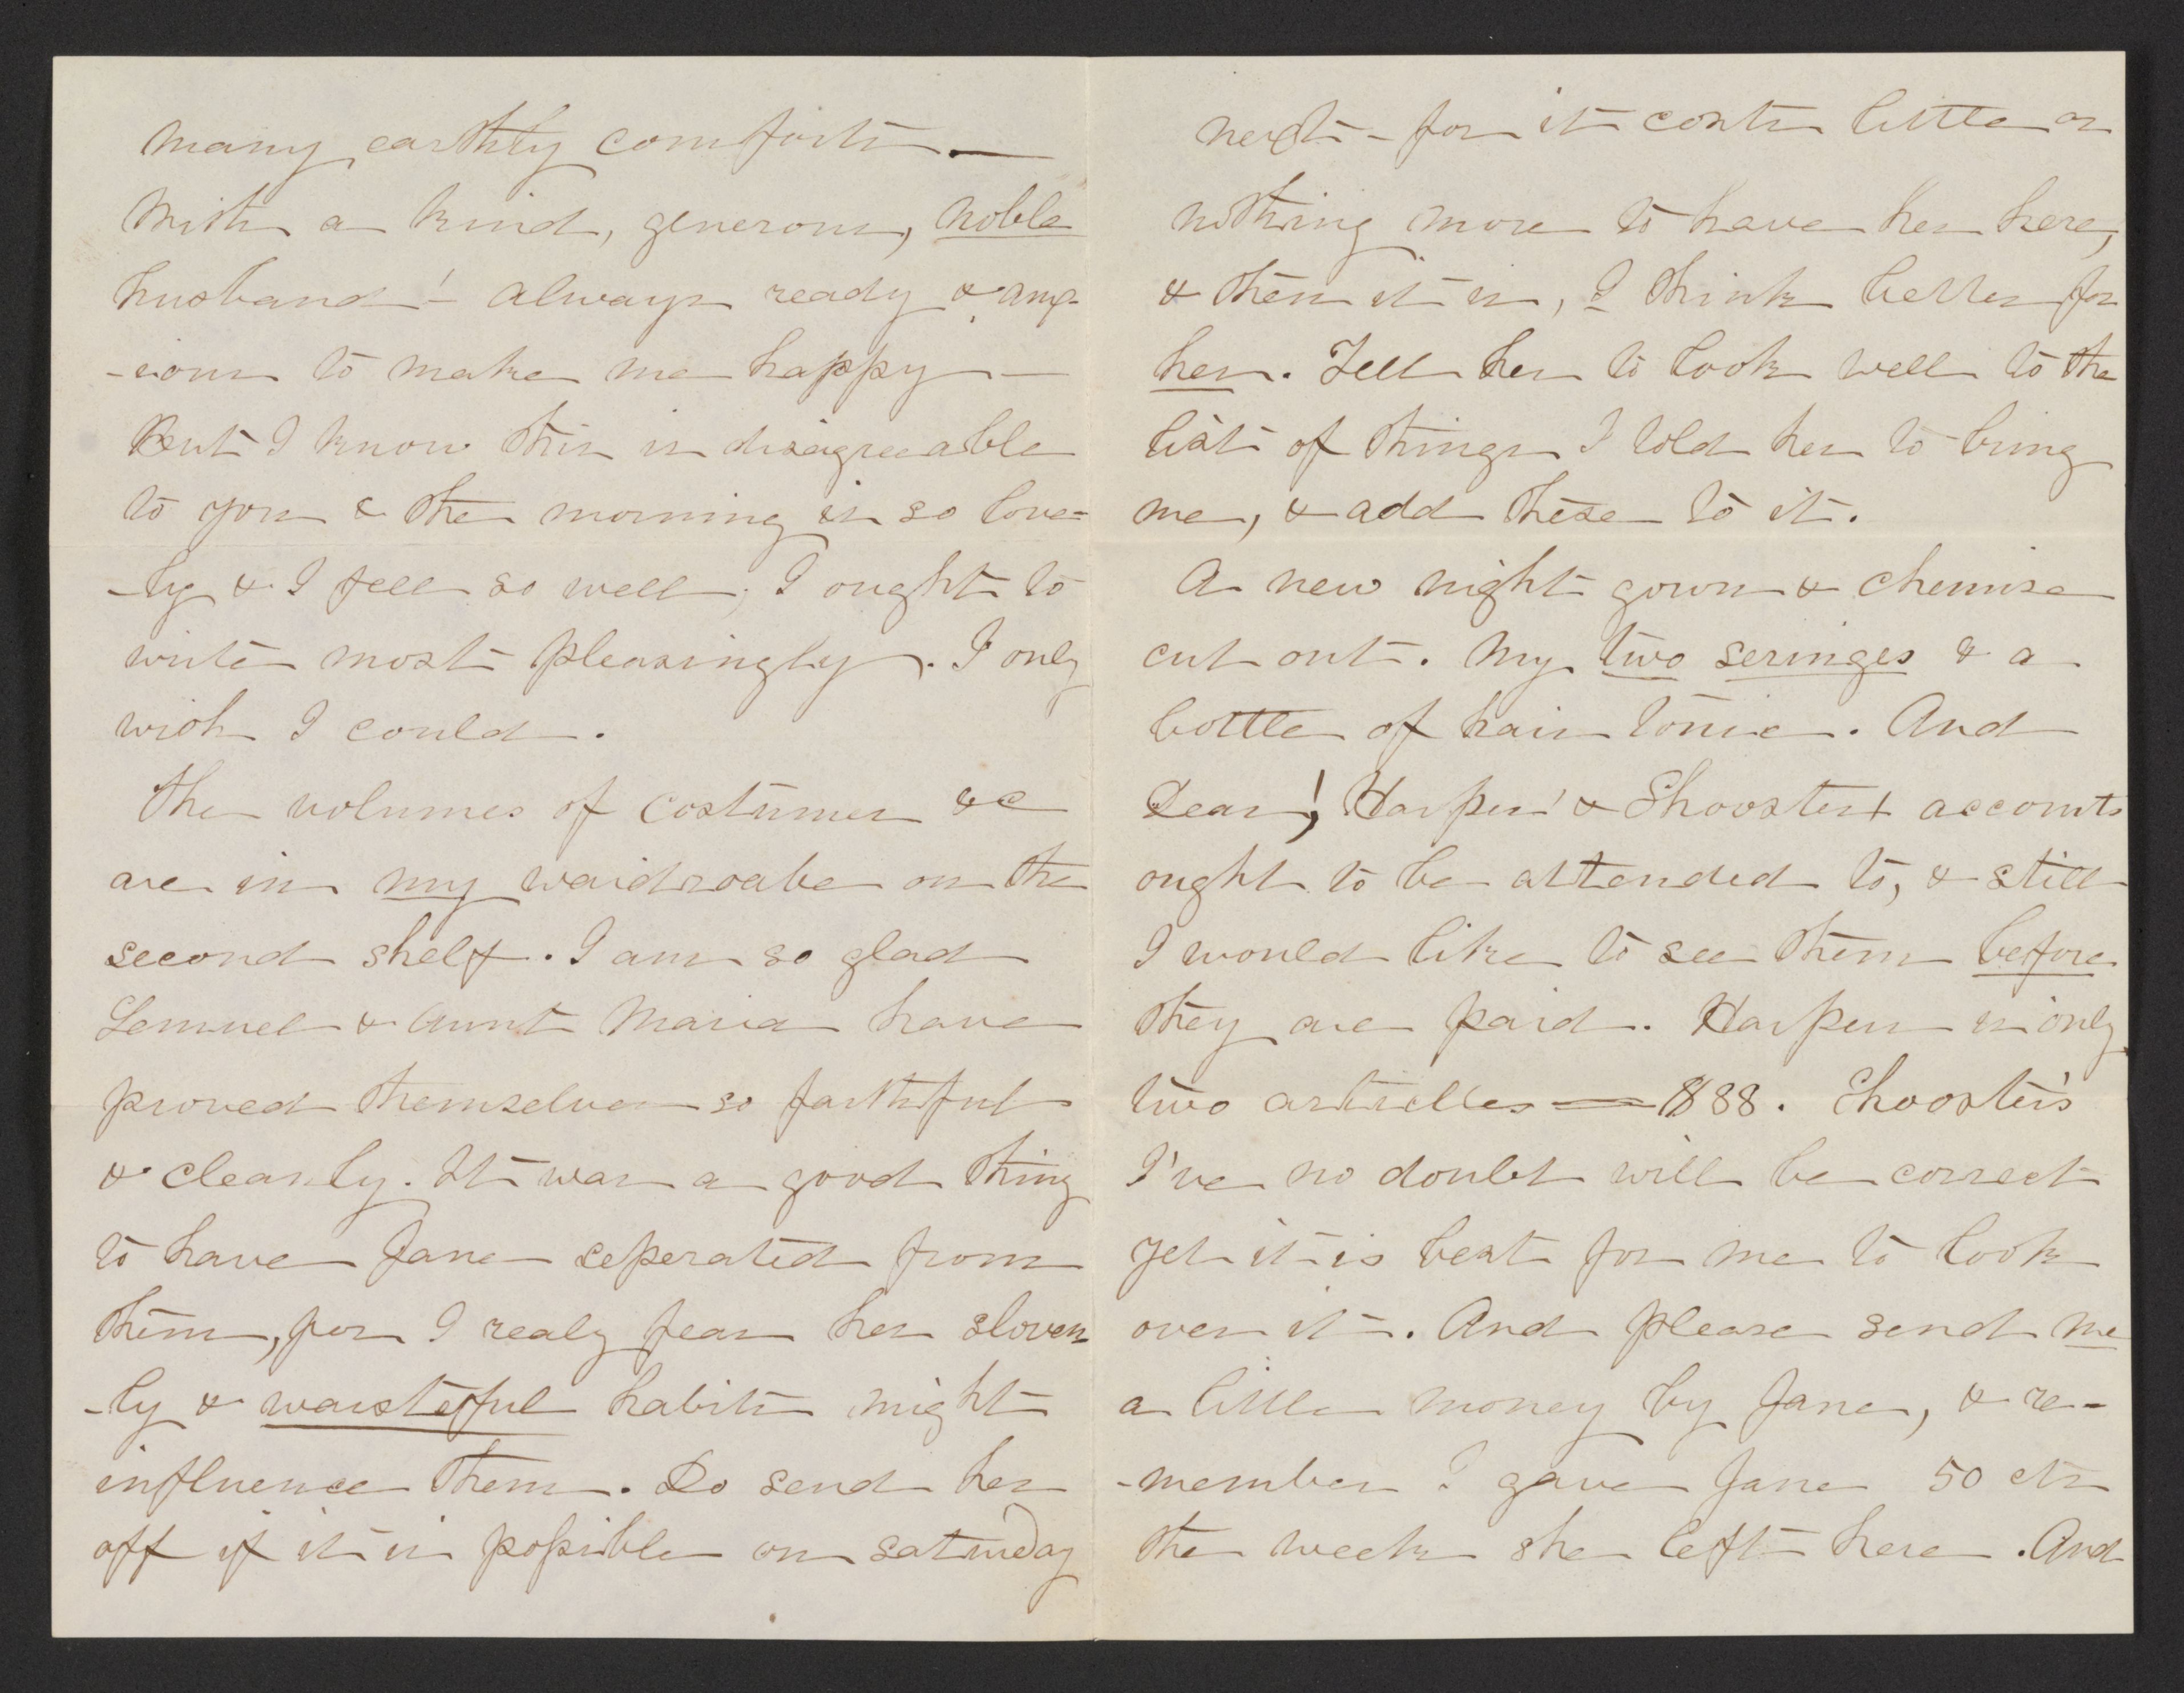 many earthly comforts.—
With a kind, generous, noble
husband! - always ready & anx-
-ious to make me happy —
But I know this is disagreeable
to you & the morning is so love-
-ly & I feel so well, I ought to
write most pleasingly. I only
wish I could.
The volumes of costumes &c
are in my waidroabe on the
second shelf. I am so glad
Lemuel & Aunt Maria have
proved themselves so faithful
& cleanly. It was a good thing
to have Jane seperated from
them, for I realy fear her sloven
-ly & waisteful habits might
influence them. Do send her
off if it is possible on saturday
next - for it costs little or
nothing more to have her here,
& then it is, I think better for
her. Tell her to look well to the
list of things I told her to bring
me, & add these to it.
A new night gown & chemise
cut out. My two seringes & a
bottle of hair tonic. And
Dear! Harper's & Shooster's accounts
ought to be attended to, & still
I would like to see them before
they are paid. Harpers is only
two articlles == $88. Shooster's
I've no doubt will be correct
yet it is best for me to look
over it. And please send me
a little money by Jane, & re-
-member I gave Jane 50 cts
the week she left here. And